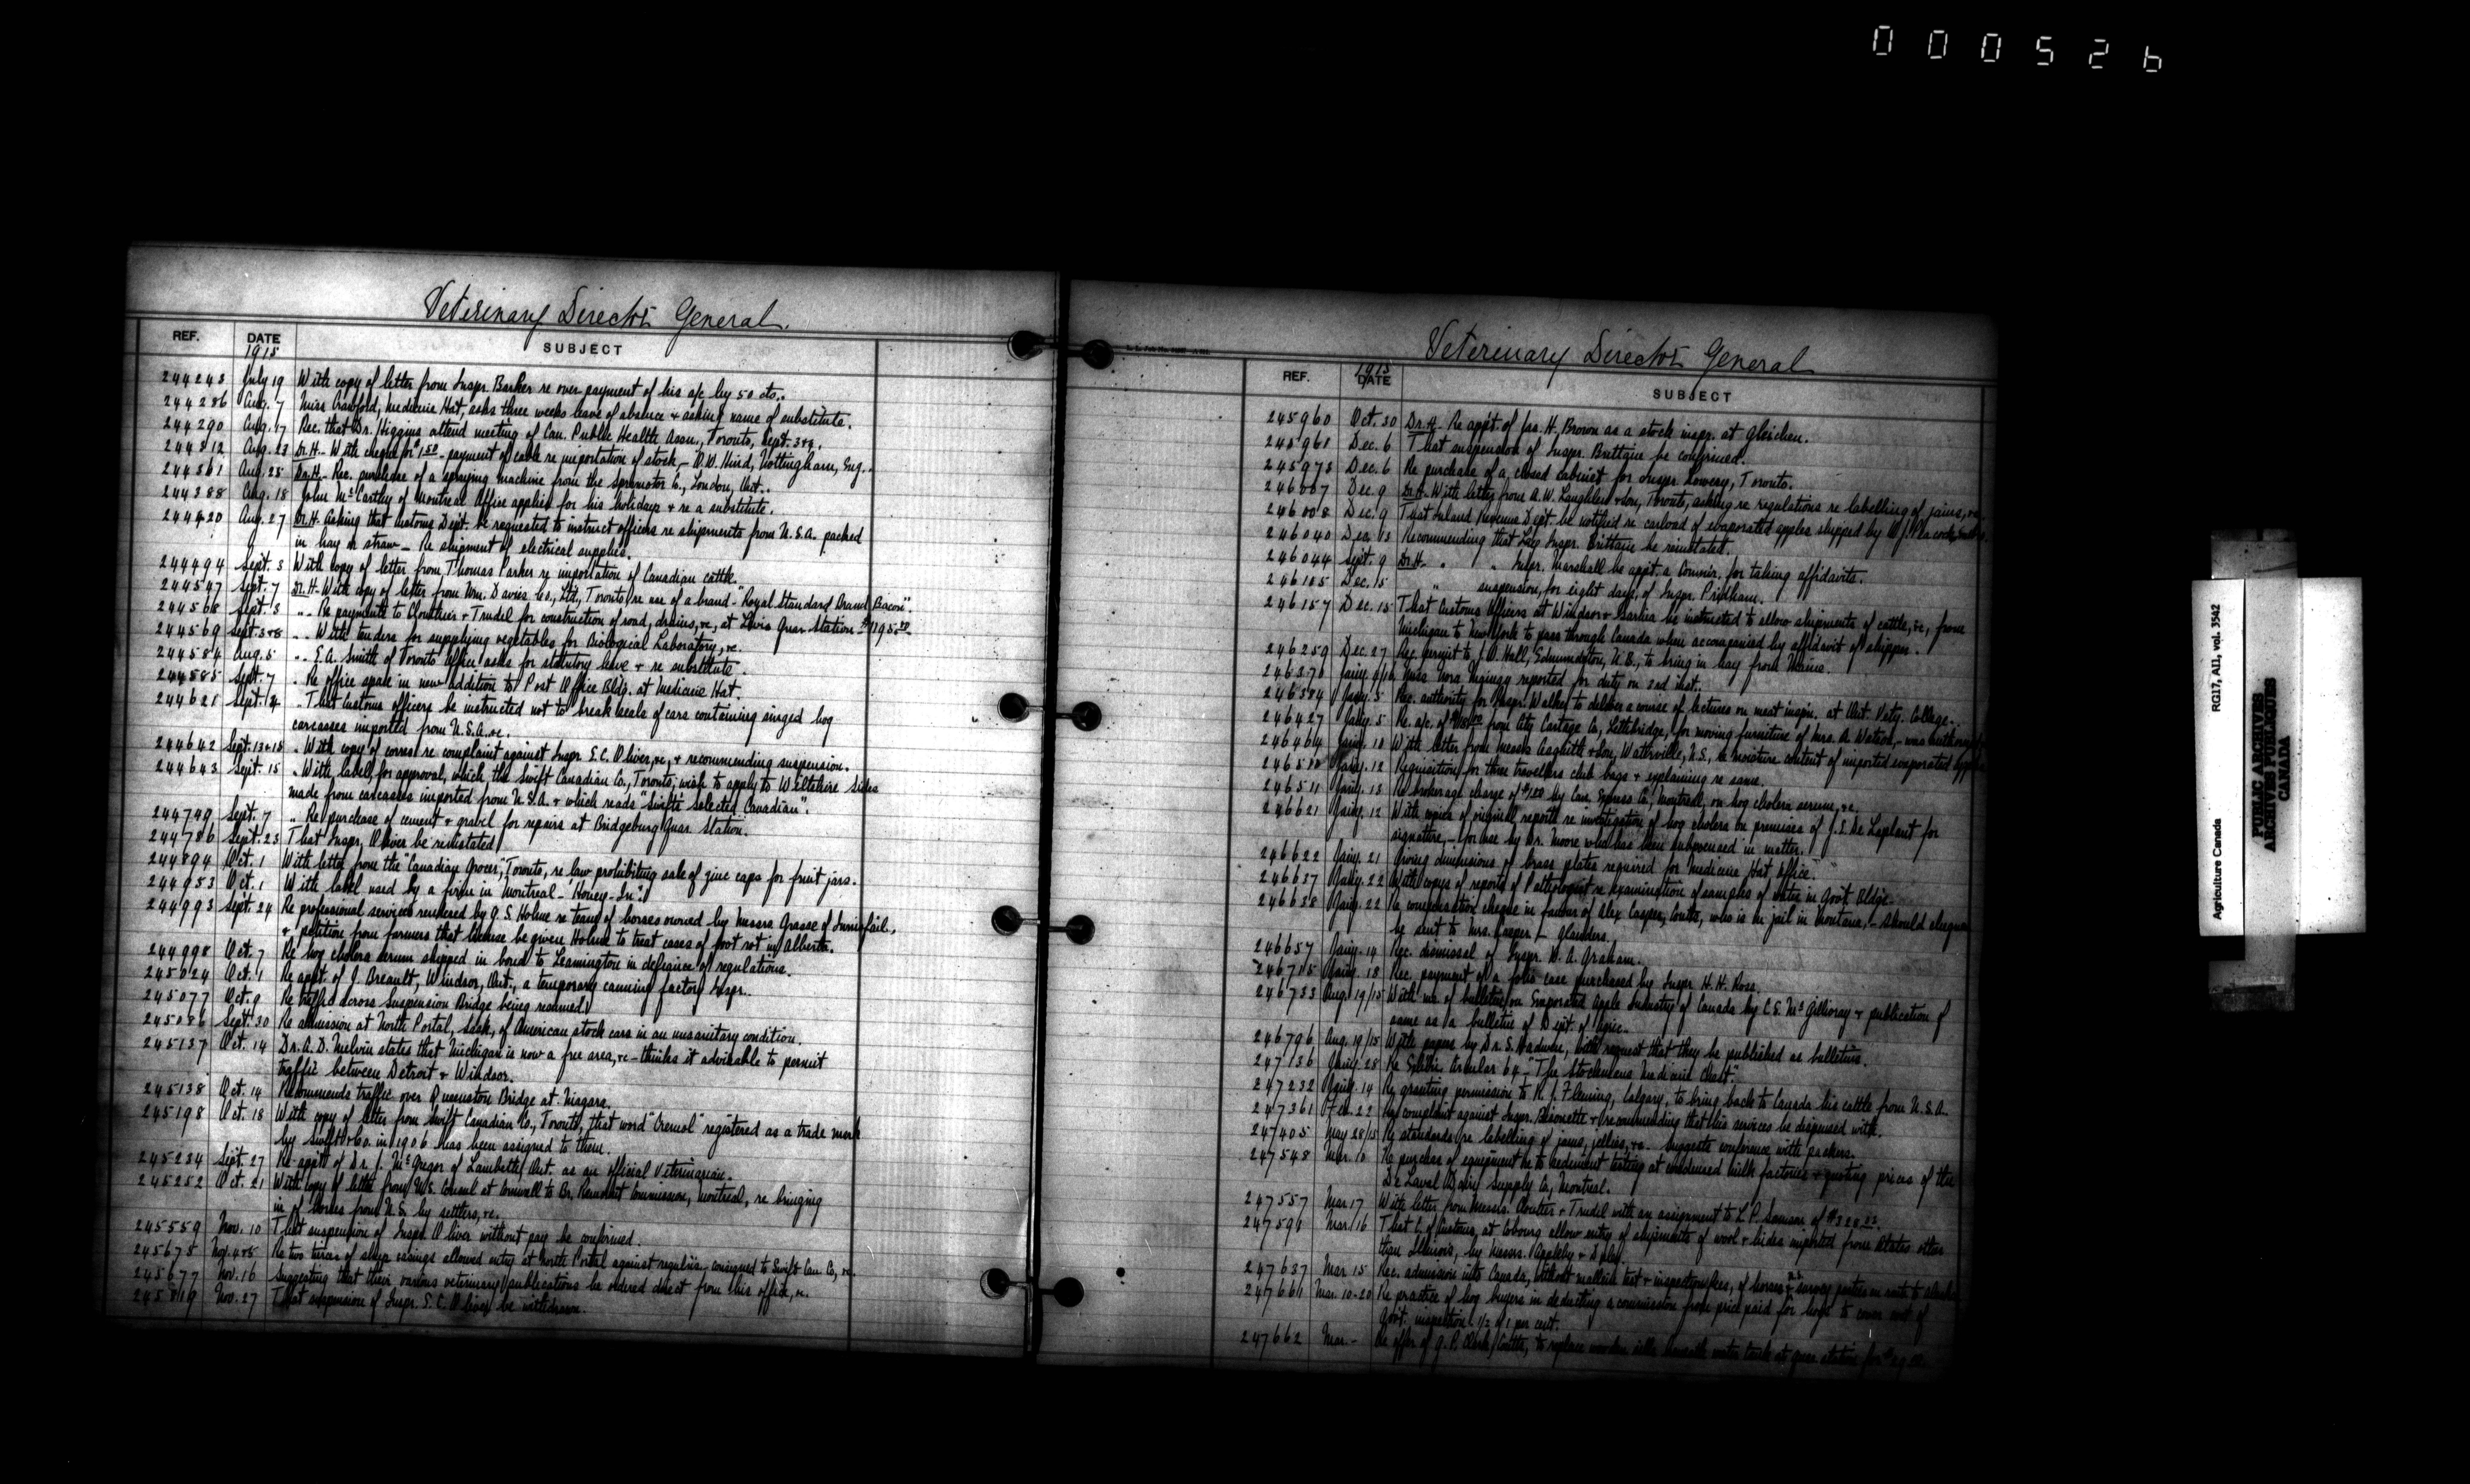 000526
Veterinary Director General
REF. DATE SUBJECT
1915
244243 July 19 With copy of letter from Inspr. Barker re over-payment of his a/c by 50 cts..
244286 Aug. 7 Miss Crawford, Medicine Hat, asks three weeks leave of absence & asking name of substitute.
244290 Aug. 17 Rec. that Dr. Higgins attend meeting of Can. Public Health Assn., Toronto, Sept. 3+4.
244312 Aug. 23 Dr. H. With cheque for 1.50 - payment of cable re importation of stock, - O.W. Hind, Nottingham, Eng..
244361 Aug. 25 Dr. H. Rec. purchase of a spraying machine from the Spramotor Co., London, Ont..
244388 Aug. 18 John McCarthy of Montreal Office applies for his holidays & re a substitute.
244420 Aug. 27 Dr. H. Asking that Customs Dept. be requested to instruct officers re shipments from U.S.A. packed
in hay or straw - Re shipment of electrical supplies.
244494 Sept. 3 With copy of letter from Thomas Parker re importation of Canadian cattle.
244547 Sept. 7 Dr. H. With copy of letter from Wm. Davies Co., Ltd., Toronto, re use of a brand - "Royal Standard Brand Bacon".
244568 Sept. 3 " Re payments to Cloutier & Trudel for construction of road, drains, &c, at Levis Quar Station - $1195.00
244569 Sept. 3+8 " With tenders for supplying vegetables for Biological Laboratory, &c.
244584 Aug. 5 " E.A. Smith of Toronto Office asks for statutory leave & re substitute.
244585 Sept. 7 " Re office space in new addition to Post Office Bldg. at Medicine Hat.
244621 Sept. 14 " That Customs officers be instructed not to break seals of cars containing singed hog
carcasses imported from U.S.A. &c.
244642 Sept. 13+15 " With copy of corres. re complaint against Inspr. S.C. Oliver, &c, & recommending suspension.
244643 Sept. 15 " With label, for approval, which the Swift Canadian Co., Toronto, wish to apply to Wiltshire Sides
made from carcasses imported from U.S.A. & which reads "Swift's Selected Canadian".
244749 Sept. 7 " Re purchase of cement & gravel for repairs at Bridgeburg Quar Station.
244786 Sept. 23 That Inspr. Oliver be reinstated
244894 Oct. 1 With letter from the "Canadian Grocer", Toronto, re law prohibiting sale of zinc caps for fruit jars.
244953 Oct. 1 With label used by a firm in Montreal - "Honey-
244993 Sept. 24 Re professional services rendered by G.S. Holme re team of horses owned by Messrs Grasse of Innisfail,
& petition from farmers that license be given Holme to treat cases of foot rot in Alberta.
244998 Oct. 7 Re hog cholera serum shipped in bond to Leamington in defiance of regulations.
245024 Oct. 1 Re appt. of J. Breault, Windsor, Ont., a temporary canning factory Inspr..
245077 Oct. 9 Re traffic across Suspension Bridge being resumed
245086 Sept. 30 Re admission at North Portal, Sask, of American stock cars in an unsanitary condition.
245137 Oct. 14 Dr. A. D. Melvin states that Michigan is now a free area, &c - thinks it advisable to permit
traffic between Detroit & Windsor.
245138 Oct. 14 Recommends traffic over Queenston Bridge at Niagara.
245198 Oct. 18 With copy of letter from Swift Canadian Co., Toronto, that word "Cremol" registered as a trade mark
by Swift & Co. in 1906 has been assigned to them.
245234 Sept. 27 Re appt. of Dr. J. McGregor of Lambeth, Ont. as an official Veterinarian.
245252 Oct. 21 With copy of letter from U.S. Consul at Cornwall to Br. Remount Commission, Montreal, re bringing
in of horses from U.S. by settlers, &c.
245559 Nov. 10 That suspension of Inspr. Oliver without pay be confirmed.
245675 Nov. 4+5 Re two tierces of sheep casings allowed entry at North Portal against regul'ns - consigned to Swift Can. Co, &c.
245677 Nov. 16 Suggesting that their various veterinary publications be ordered direct from this office, &c.
245819 Nov. 27 That suspension of Inspr. S.C. Oliver be withdrawn.
Veterinary Director General
REF. 1915 DATE SUBJECT
245960 Oct. 30 Dr. H. Re appt. of Jas. H. Brown as a stock inspr. at Gleichen.
245961 Dec. 6 That suspension of Inspr. Brittain be confirmed.
245973 Dec. 6 Re purchase of a closed cabinet for Inspr Lowery, Toronto.
246007 Dec. 9 Dr. H. With letter from A.W. Laughlen & Son, Toronto, asking re regulations re labelling of jams, &c.
246008 Dec. 9 That Inland Revenue Dept. be notified re carload of evaporated apples shipped by W.J.
246040 Dec. 13 Recommending that Lay Inspr. Brittain be reinstated.
246044 Sept. 9 Dr. H. " " Inspr. Marshall be appt. a Commr. for taking affidavits.
246105 Dec. 15 " suspension, for eight days, of Inspr. Pridham.
246157 Dec. 15 That Customs Officers at Windsor & Sarnia be instructed to allow shipments of cattle, &c, from
Michigan to New York to pass through Canada when accompanied by affidavit of shipper.
246259 Dec. 27 Rec. permit to J.O. Hall, Edmundston, N.B., to bring in hay from Maine.
246370 Jany. 4/16 Miss Nora reported for duty on 3rd inst..
246384 Jany. 5 Rec. authority for Inspr. Walker to deliver a course of lectures on meat inspn. at Ont. Vety. College.
246427 Jany. 5 Re. a/c. of from City Cartage Co., Lethbridge, for moving furniture of Mrs. A. Watson, - was
246464 Jany. 10 With letter from Messrs & Son, Wathville, N.S., re moisture content of imported evaporated
246510 Jany. 12 Requisition for three travellers club bags & explaining re same.
246511 Jany. 13 Re brokerage charge of $1.00 by Can. Express Co., Montreal, on hog cholera serum, &c.
246621 Jany. 12 With copies of original reports re investigation of hog cholera on premises of J.E. De Laplant for
signature, - for use by Dr. Moore who has been subpoenaed in matter.
246622 Jany. 21 Giving dimensions of brass plates required for Medicine Hat office.
246637 Jany. 22 With copies of reports of Pathologist re examination of samples of water in Govt Bldgs.
246638 Jany. 22 Re compensation cheque in favour of Alex Casper, Coutts, who is in jail in Montana, - should cheque
be sent to Mrs. Casper - Glanders.
246657 Jany. 14 Rec. dismissal of Inspr. W. A. Graham.
246715 Jany. 18 Rec. payment of a folio case purchased by Inspr H.H. Ross.
246733 Aug. 19/15 With ms. of bulletin on Evaporated Apple Industry of Canada by C.S. McGillivray & publication of
same as a bulletin of Dept. of Agric.
246796 Aug. 19/15 With papers by Dr. S. Hadwen, with request that they be published as bulletins.
247136 Jany. 28 Re Circular 64 - "The Stockmans Medicine Chest".
247232 Jany. 14 Re granting permission to R.J. Fleming, Calgary, to bring back to Canada his cattle from U.S.A.
247361 Feb. 22 Re complaint against Inspr. Bissonette & recommending that his services be dispensed with.
247405 May 28/15 Re standards re labelling of jams, jellies, &c. - suggests conference with packers.
247548 Mar. 10 Re purchase of equipment re to sediment testing at condensed milk factories & quoting prices of the
De Laval Dairy Supply Co., Montreal.
247557 Mar 17 With letter from Messrs. Cloutier & Trudel with an assignment to L.P. Samson of
247591 Mar. 16 That C. of Customs, at Cobourg allow entry of shipments of wool & hides imported from States other
than Illinois, by Messrs. Appleby &
247637 Mar 15 Rec. admission into Canada, without mallein test & inspection fees, of horses of U.S. survey parties en route to Alaska
247661 Mar. 10-20 Re practice of hog buyers in deducting a commission from price paid for hogs to cover cost of
Govt. inspection 1/2 of 1 per cent.
247662 Mar. - Re offer of G.P. Clark, Coutts, to replace wooden sills beneath water tank at quar. station for
Agriculture Canada RG17, AII, vol. 3542
PUBLIC ARCHIVES
ARCHIVES PUBLIQUES
CANADA